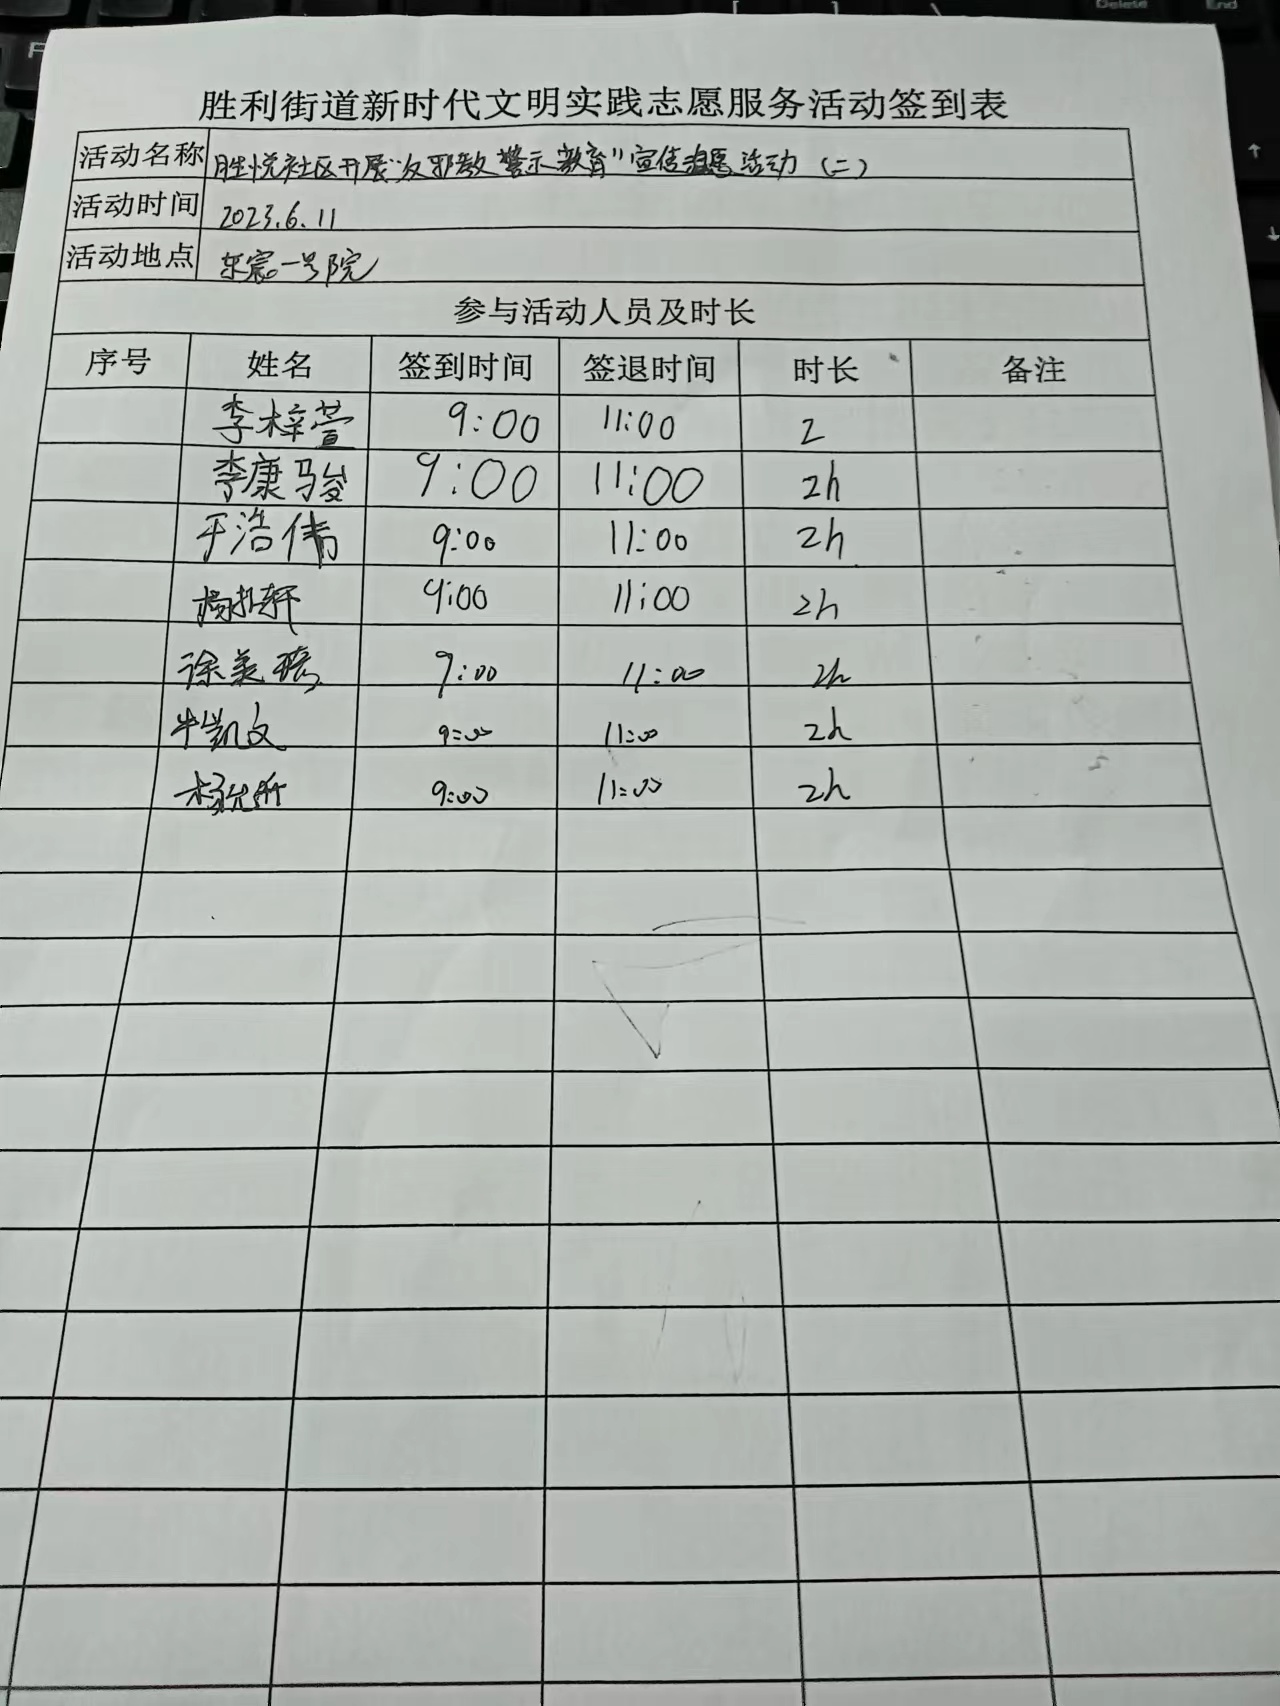 胜利街道新时代文明实践志愿服务活动签到表
活动名称 胜悦社区开展"反邪教警示教育"宣传志愿活动（二）
活动时间 2023.6.11
活动地点 东宸一号院
参与活动人员及时长
序号 姓名 签到时间 签退时间 时长 备注
李梓萱 9:00 11:00 2
李康骏 9:00 11:00 2h
于浩伟 9:00 11:00 2h
9:00 11:00 2h
徐美 9:00 11:00 2h
牛凯文 9:00 11:00 2h
9:00 11:00 2h
Delete
End